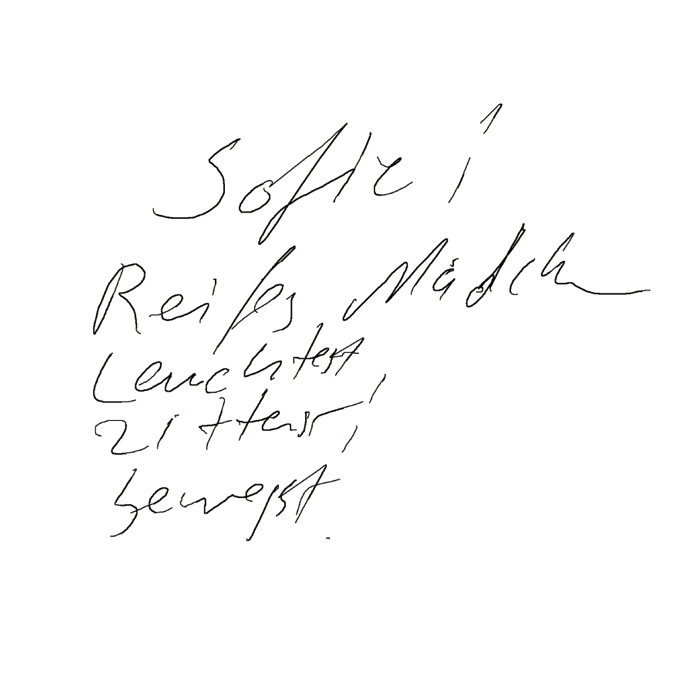 Sofie!
Reifes Mädch
Leuchtest,
zitterst,
bewegst.